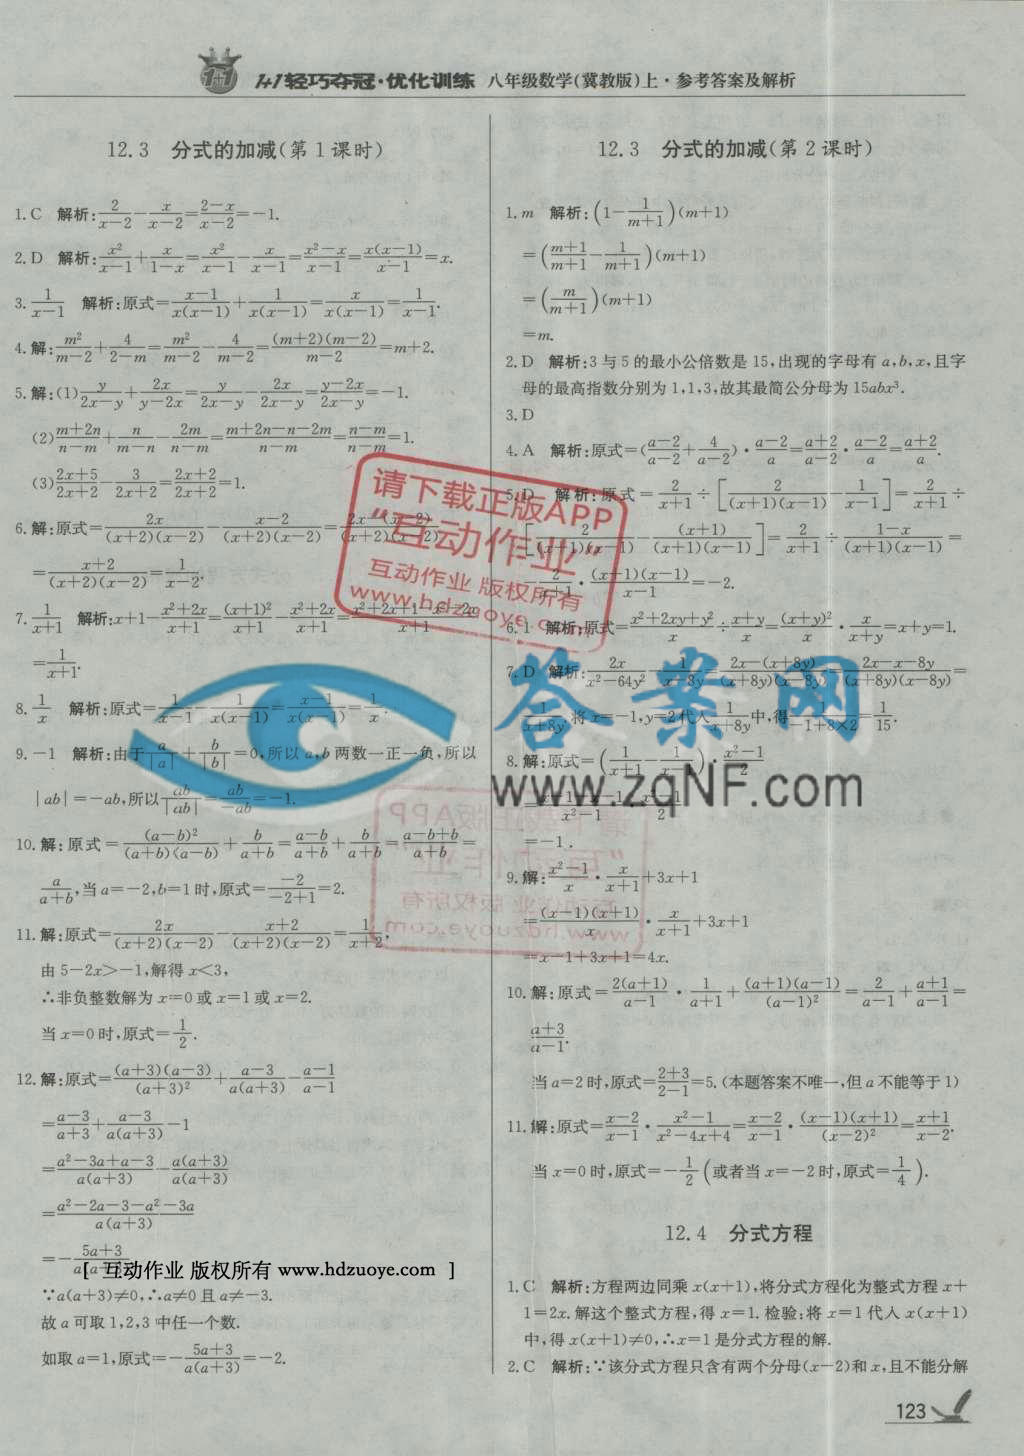 1+1轻巧夺冠·优化训练 八年级数学(冀教版)上·参考答案及解析
12.3 分式的加减(第1课时)
1.C 解析:2/(x-2)-x/(x-2)=(2-x)/(x-2)=-1.
2.D 解析:x²/(x-1)+x/(1-x)=x²/(x-1)-x/(x-1)=(x²-x)/(x-1)=x(x-1)/(x-1)=x.
3.1/(x-1) 解析:原式=(x-1)/(x(x-1))+1/(x(x-1))=x/(x(x-1))=1/(x-1).
4.解:m²/(m-2)+4/(2-m)=m²/(m-2)-4/(m-2)=(m+2)(m-2)/(m-2)=m+2.
5.解:(1)y/(2x-y)+2x/(y-2x)=y/(2x-y)-2x/(2x-y)=(y-2x)/(2x-y)=-1.
(2)(m+2n)/(n-m)+n/(m-n)-2m/(n-m)=(m+2n-n-2m)/(n-m)=(n-m)/(n-m)=1.
(3)(2x+5)/(2x+2)-3/(2x+2)=(2x+2)/(2x+2)=1.
6.解:原式=2x/((x+2)(x-2))-(x-2)/((x+2)(x-2))=(2x-(x-2))/((x+2)(x-2))
=(x+2)/((x+2)(x-2))=1/(x-2).
7.1/(x+1) 解析:x+1-(x²+2x)/(x+1)=(x+1)²/(x+1)-(x²+2x)/(x+1)=(x²+2x+1-x²-2x)/(x+1)
=1/(x+1).
8.1/x 解析:原式=1/(x-1)-1/(x(x-1))=(x-1)/(x(x-1))=1/x.
9.-1 解析:由于a/|a|+b/|b|=0,所以a,b两数一正一负,所以
|ab|=-ab,所以ab/|ab|=ab/-ab=-1.
10.解:原式=(a-b)²/((a+b)(a-b))+b/(a+b)=(a-b)/(a+b)+b/(a+b)=(a-b+b)/(a+b)=
a/(a+b),当a=-2,b=1时,原式=-2/(-2+1)=2.
11.解:原式=2x/((x+2)(x-2))-(x+2)/((x+2)(x-2))=1/(x+2),
由5-2x>-1,解得x<3,
∴非负整数解为x=0或x=1或x=2.
当x=0时,原式=1/2.
12.解:原式=(a+3)(a-3)/(a+3)²+(a-3)/(a(a+3))-(a-1)/(a-1)
=(a-3)/(a+3)+(a-3)/(a(a+3))-1
=(a²-3a+a-3)/(a(a+3))-a(a+3)/(a(a+3))
=(a²-2a-3-a²-3a)/(a(a+3))
=-(5a+3)/(a(a+3))
[ 互动作业 版权所有 www.hdzuoye.com ]
∵a(a+3)≠0,∴a≠0且a≠-3.
故a可取1,2,3中任一个数.
如取a=1,原式=-(5a+3)/(a(a+3))=-2.
12.3 分式的加减(第2课时)
1.m 解析:(1-1/(m+1))(m+1)
=((m+1)/(m+1)-1/(m+1))(m+1)
=(m/(m+1))(m+1)
=m.
2.D 解析:3与5的最小公倍数是15,出现的字母有a,b,x,且字
母的最高指数分别为1,1,3,故其最简公分母为15abx³.
3.D
4.A 解析:原式=((a-2)/(a-2)+4/(a-2))·(a-2)/a=(a+2)/(a-2)·(a-2)/a=(a+2)/a.
5.D 解析:原式=2/(x+1)÷[2/((x+1)(x-1))-1/(x-1)]=2/(x+1)÷
[2/((x+1)(x-1))-(x+1)/((x+1)(x-1))]=2/(x+1)÷(1-x)/((x+1)(x-1))=
-2/(x+1)·(x+1)(x-1)/(x-1)=-2.
6.1 解析:原式=(x²+2xy+y²)/x÷(x+y)/x=(x+y)²/x·x/(x+y)=x+y=1.
7.D 解析:2x/(x²-64y²)-1/(x-8y)=(2x-(x+8y))/((x+8y)(x-8y))=(2x-x-8y)/((x+8y)(x-8y))=
1/(x+8y).将x=-1,y=2代入1/(x+8y)中,得1/(-1+8×2)=1/15.
8.解:原式=(1/(x+1)-1/(x-1))·(x²-1)/2
=(x-1-x-1)/(x²-1)·(x²-1)/2
=-1.
9.解:(x²-1)/x·x/(x+1)+3x+1
=(x-1)(x+1)/x·x/(x+1)+3x+1
=x-1+3x+1=4x.
10.解:原式=2(a+1)/(a-1)·1/(a+1)+(a+1)(a-1)/(a-1)²=2/(a-1)+(a+1)/(a-1)=
(a+3)/(a-1).
当a=2时,原式=(2+3)/(2-1)=5.(本题答案不唯一,但a不能等于1)
11.解:原式=(x-2)/(x-1)·(x²-1)/(x²-4x+4)=(x-2)/(x-1)·(x-1)(x+1)/(x-2)²=(x+1)/(x-2).
当x=0时,原式=-1/2(或者当x=-2时,原式=1/4).
12.4 分式方程
1.C 解析:方程两边同乘x(x+1),将分式方程化为整式方程x+
1=2x.解这个整式方程,得x=1.检验:将x=1代入x(x+1)
中,得x(x+1)≠0,∴x=1是分式方程的解.
2.C 解析:∵该分式方程只含有两个分母(x-2)和x,且不能分解
123
请下载正版APP
“互动作业”
互动作业 版权所有
www.hdzuoye.com
答案网
www.zqNF.com